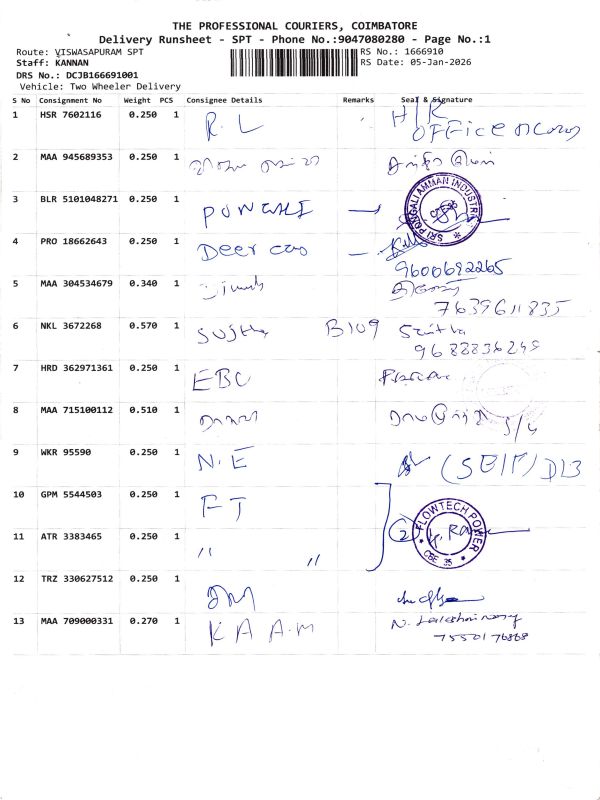 THE PROFESSIONAL COURIERS, COIMBATORE
Delivery Runsheet - SPT - Phone No.:9047080280 - Page No.:1
Route: VISWASAPURAM SPT
RS No.: 1666910
Staff: KANNAN
RS Date: 05-Jan-2026
DRS No.: DCJB166691001
Vehicle: Two Wheeler Delivery
S No Consignment No Weight PCS Consignee Details Remarks Seal & Signature
1 HSR 7602116 0.250 1 R. L H/K
OFFICE
2 MAA 945689353 0.250 1
3 BLR 5101048271 0.250 1 PONGALI SRI PONGALI AMMAN INDUSTRI
4 PRO 18662643 0.250 1 Deer
9600692265
5 MAA 304534679 0.340 1
7639611835
6 NKL 3672268 0.570 1 Sujitha B109
9688836249
7 HRD 362971361 0.250 1 EBC
8 MAA 715100112 0.510 1
9 WKR 95590 0.250 1 N.E (SELF) D13
10 GPM 5544503 0.250 1 FT
2 FLOWTECH POWER CBE 35
11 ATR 3383465 0.250 1 " "
12 TRZ 330627512 0.250 1
13 MAA 709000331 0.270 1 K A A.M N.
7550176868